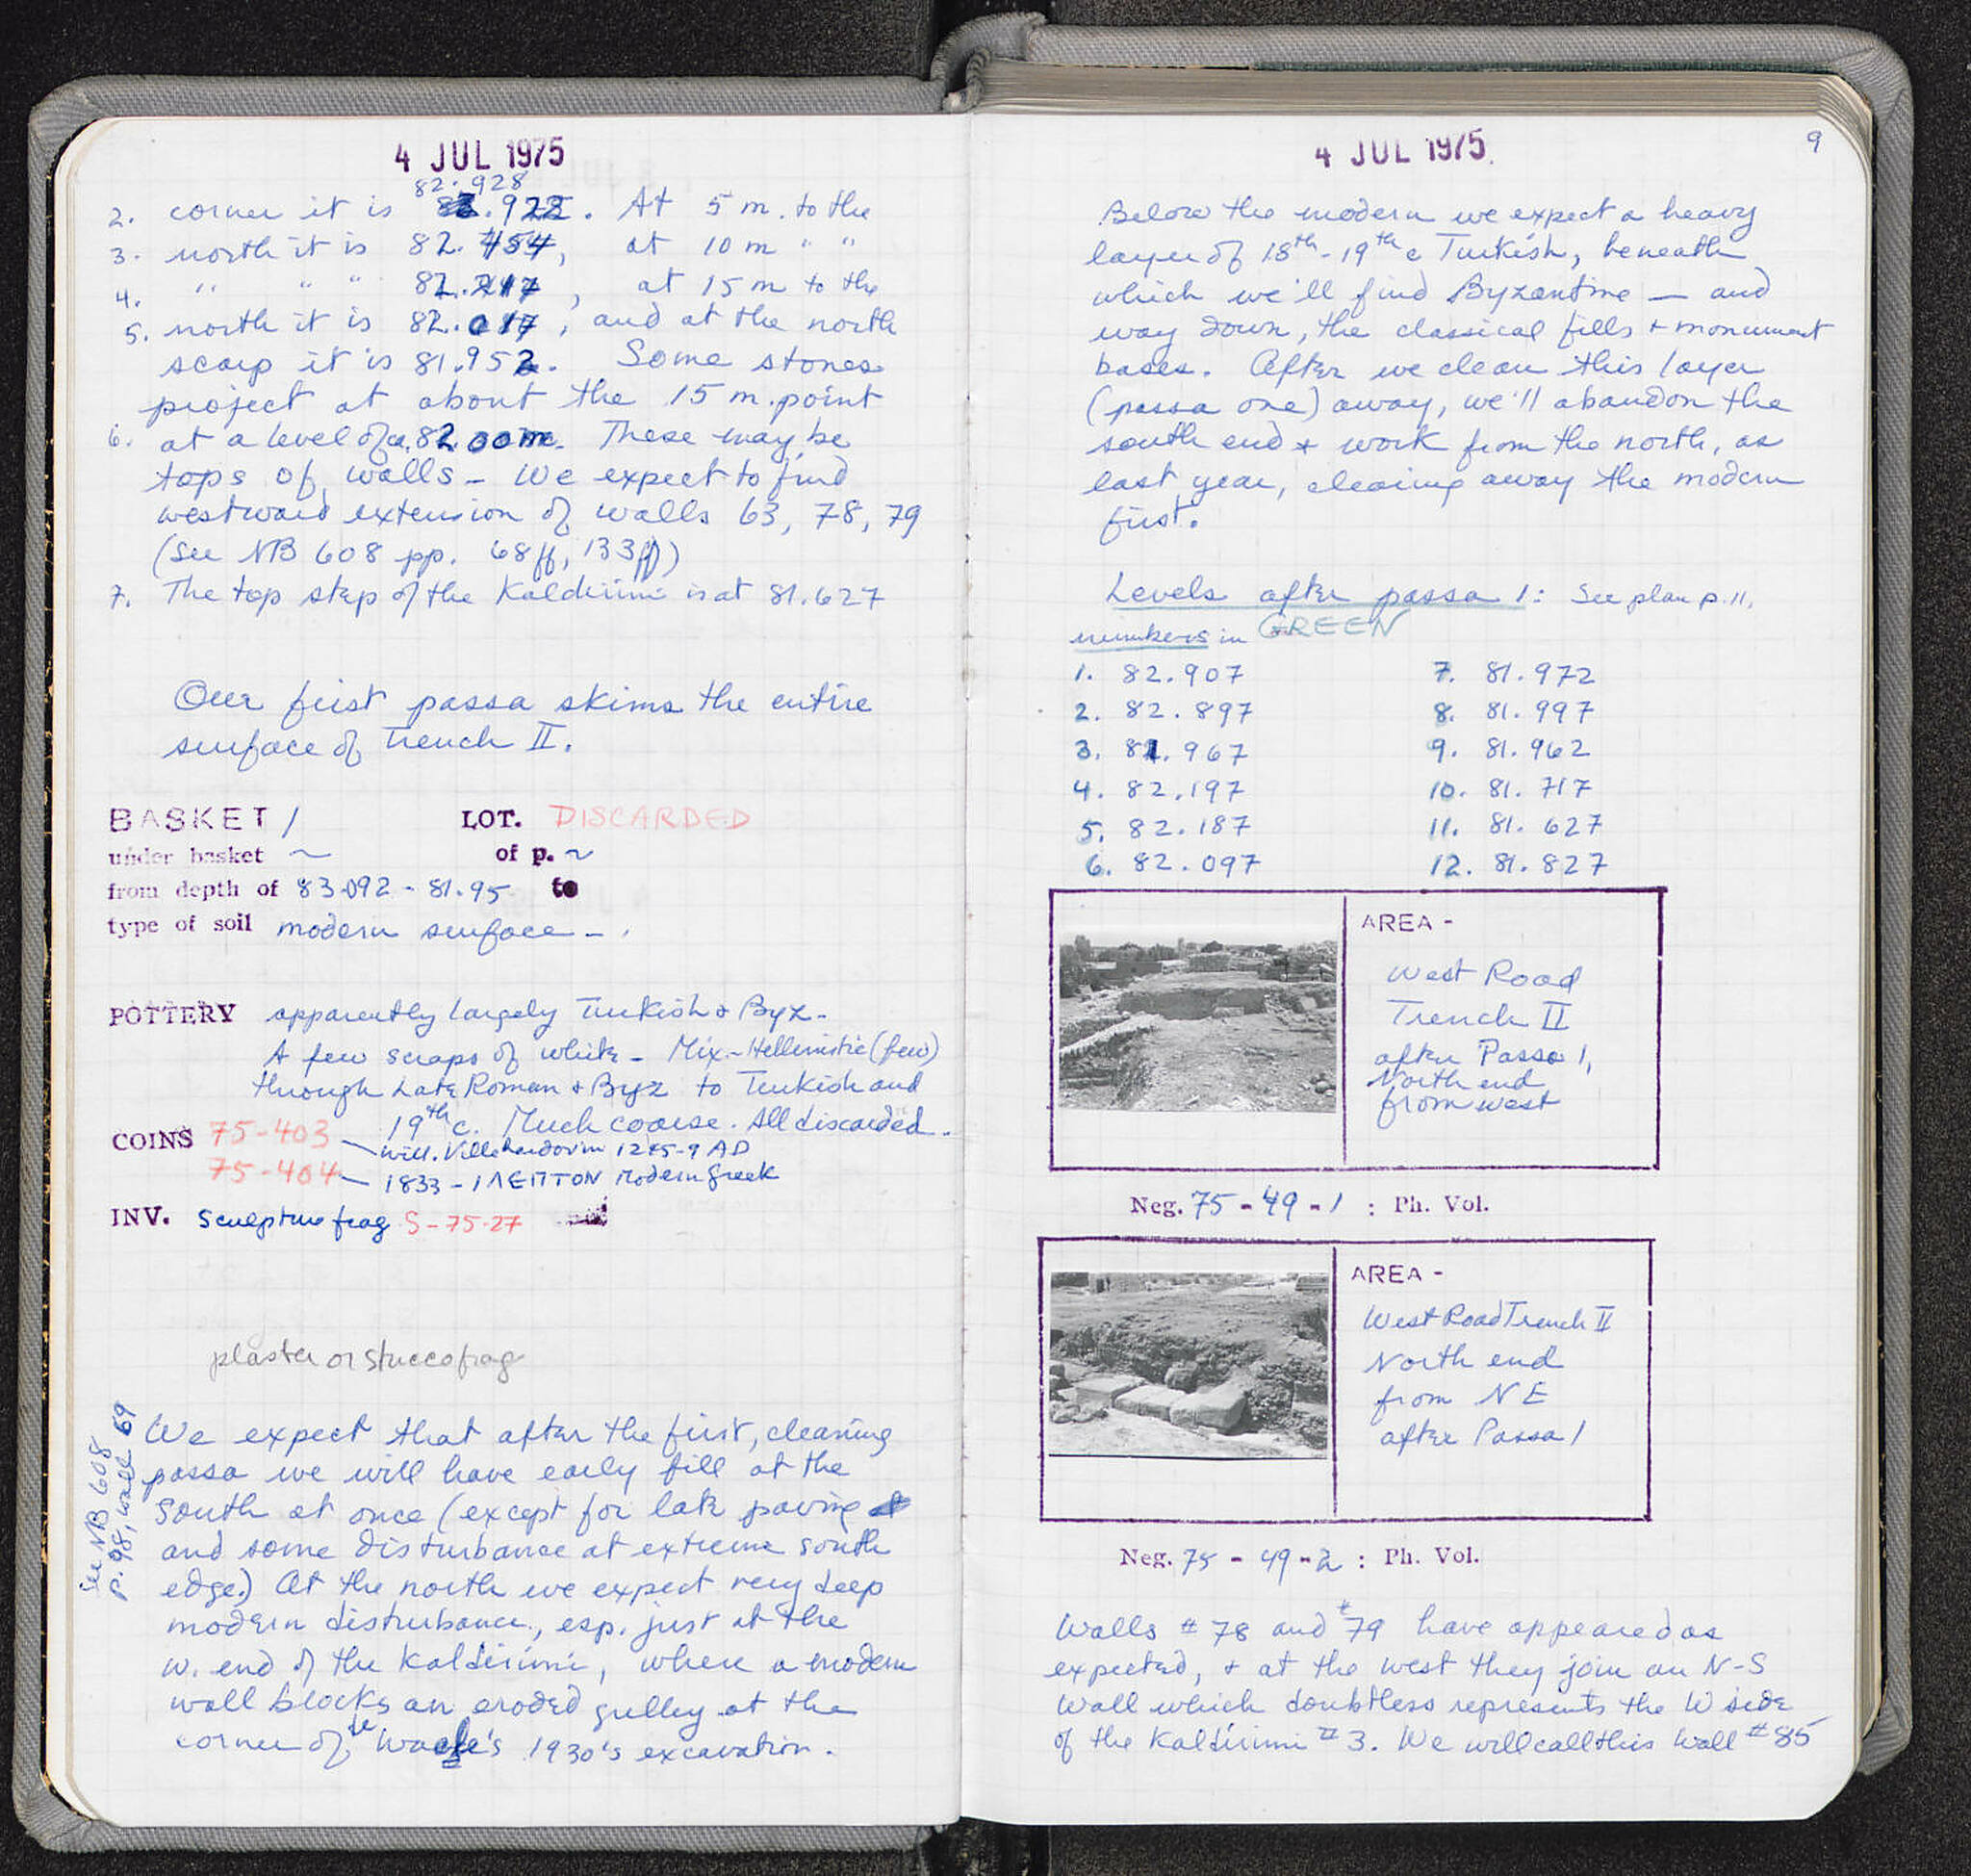 4 JUL 1975
82.928
2. corner it is . At 5 m. to the
3. north it is 82.454, at 10 m " "
4. " " " 82.217, at 15 m to the
5. north it is 82.017, and at the north
scarp it is 81.952. Some stones
project at about the 15 m. point
6. at a level of ca. 82.00m. These may be
tops of walls – We expect to find
westward extension of walls 63, 78, 79
(See NB 608 pp. 68ff, 133ff)
7. The top step of the Kaldirimi is at 81.627
Our first passa skims the entire
surface of Trench II.
BASKET 1 LOT. DISCARDED
under basket ~ of p. ~
from depth of 83.092 - 81.95 to
type of soil modern surface –
POTTERY apparently largely Turkish & Byz –
A few scraps of white – Mix – Hellenistic (few)
through Late Roman & Byz to Turkish and
19th c. Much coarse. All discarded.
COINS 75-403 – Will. Villehardouin 1245-9 AD
75-404 – 1833 – 1 ΛΕΠΤΟΝ Modern Greek
INV. Sculpture frag S-75-27
plaster or stucco frag
We expect that after the first, cleaning
passa we will have early fill at the
south at once (except for late paving
and some disturbance at extreme south
edge.) At the north we expect very deep
modern disturbance, esp. just at the
w. end of the Kaldirimi, where a modern
wall blocks an eroded gulley at the
corner of de Waele's 1930's excavation.
See NB 608
p. 98, wall 69
4 JUL 1975
9
Below the modern we expect a heavy
layer of 18th-19th c Turkish, beneath
which we'll find Byzantine – and
way down, the classical fills + monument
bases. After we clean this layer
(passa one) away, we'll abandon the
south end & work from the north, as
last year, clearing away the modern
first.
Levels after passa 1: See plan p. 11,
numbers in GREEN
1. 82.907 7. 81.972
2. 82.897 8. 81.997
3. 81.967 9. 81.962
4. 82.197 10. 81.717
5. 82.187 11. 81.627
6. 82.097 12. 81.827
AREA -
West Road
Trench II
after Passa 1,
North end
from west
Neg. 75 - 49 - 1 : Ph. Vol.
AREA -
West Road Trench II
North end
from NE
after Passa 1
Neg. 75 - 49 - 2 : Ph. Vol.
Walls # 78 and #79 have appeared as
expected, & at the west they join an N-S
Wall which doubtless represents the W side
of the Kaldirimi # 3. We will call this Wall # 85